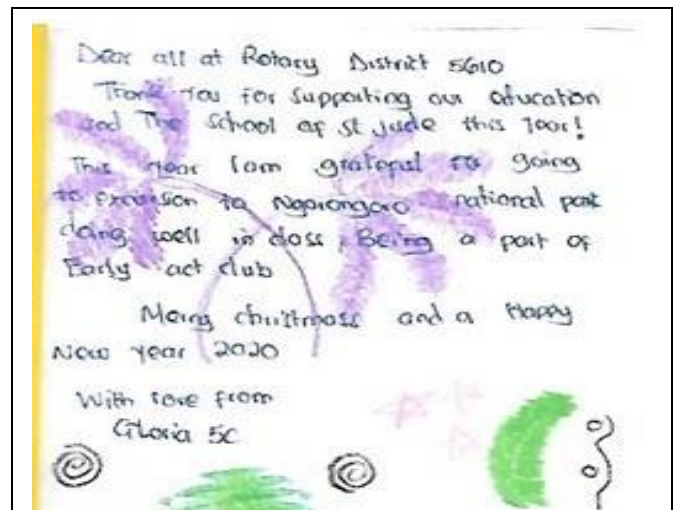 Dear all at Rotary District 5610
Thank You for Supporting our education
and The School of St Jude this Year!
This year I am grateful for going
to excursion to Ngorongoro national park
doing well in class, Being a part of
Early act club
Merry christmass and a Happy
New year 2020
With love from
Gloria 5C